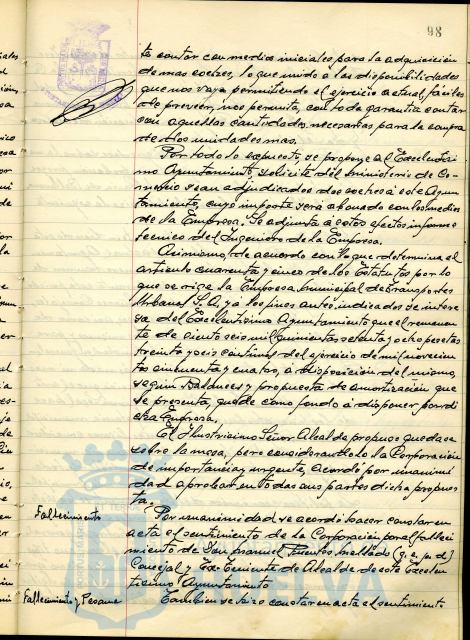 98
te contar con medios iniciales para la adquisición
de mas coches, lo que unido a las disponibilidades
que nos vaya permitiendo el ejercicio actual, faciles
de preveer, nos permita, con toda garantia contar
con aquellas cantidades necesarias para la compra
de dos unidades mas.
Por todo lo expuesto, se propone al Excelentisi-
mo Ayuntamiento, solicite del Ministerio de Co-
mercio sean adjudicados dos coches a este Ayun-
tamiento, cuyo importe será abonado con los medios
de la Empresa. Se adjunta a estos efectos informe
tecnico del Ingeniero de la Empresa.
Asimismo, de acuerdo con lo que determina el
articulo cuarenta y cinco de los Estatutos por lo
que se rige la Empresa Municipal de Transportes
Urbanos S.A. y a los fines antes indicados se intere
sa del Excelentisimo Ayuntamiento que el remanen-
te de ciento seis mil quinientas setenta y ocho pesetas
treinta y seis centimos del ejercicio de mil novecien
tos cincuenta y cuatro, a disposición del mismo,
segun Balances y propuesta de amortización que
se presenta, quede como fondo a disponer por di
cha Empresa.
El Ilustrisimo Señor Alcalde propuso quedase
sobre la mesa, pero considerandolo la Corporación
de importancia y urgente, acordó por unanimi
dad aprobar en todas sus partes dicha propues
ta.
Fallecimiento
Por unanimidad se acordó hacer constar en
acta el sentimiento de la Corporación por el falleci
miento de Don Manuel Mellado (q.e.p.d)
Concejal y Ex-Teniente de Alcalde de este Excelen
tisimo Ayuntamiento
Fallecimiento y Pesame
Tambien se hizo constar en acta el sentimiento
HUELVA